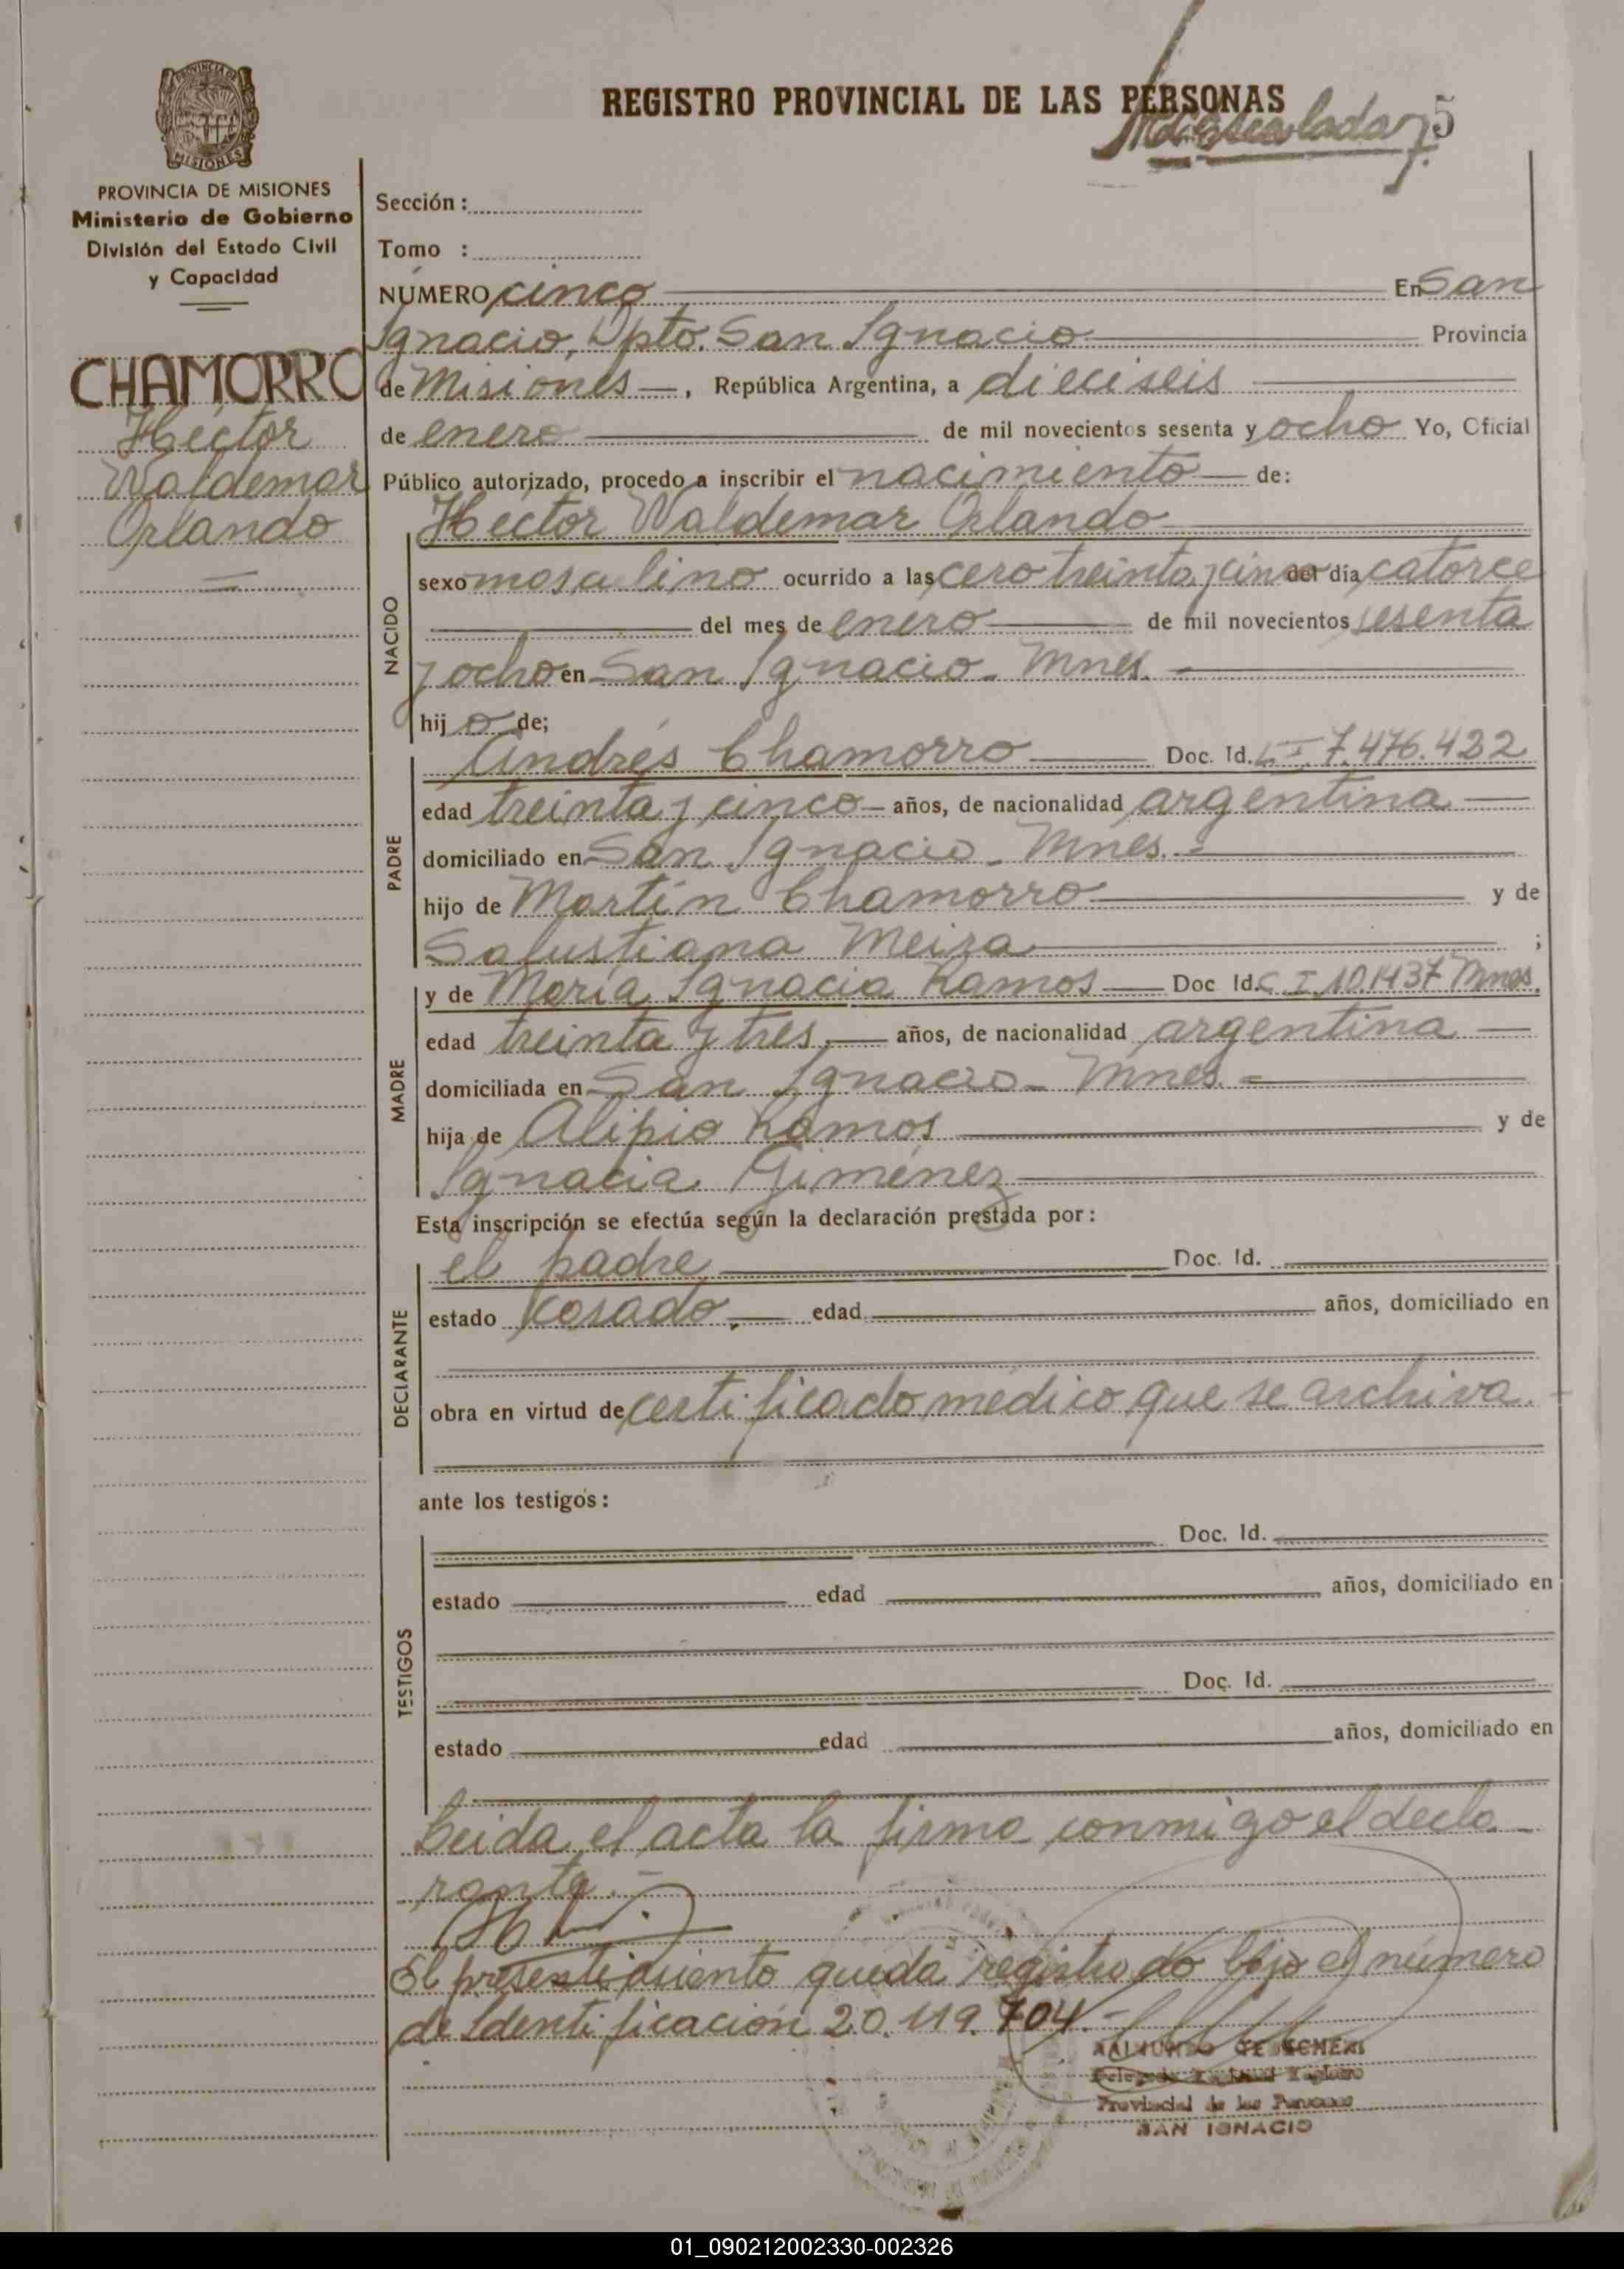 REGISTRO PROVINCIAL DE LAS PERSONAS
5
MISIONES
PROVINCIA DE MISIONES
Ministerio de Gobierno
División del Estado Civil
y Capacidad
CHAMORRO
Héctor
Waldemar
Orlando
Sección :
Tomo :
NÚMERO cinco En San
Ignacio, Dpto. San Ignacio Provincia
de Misiones —, República Argentina, a dieciseis
de enero de mil novecientos sesenta y ocho Yo, Oficial
Público autorizado, procedo a inscribir el nacimiento — de:
NACIDO
Héctor Waldemar Orlando
sexo masculino ocurrido a las cero treinta y cinco del día catorce
del mes de enero de mil novecientos sesenta
y ocho en San Ignacio - Mnes. -
hijo de;
PADRE
Andrés Chamorro — Doc. Id. 7.476.422
edad treinta y cinco — años, de nacionalidad argentina —
domiciliado en San Ignacio - Mnes. -
hijo de Martín Chamorro y de
Salustiana Meiza ;
MADRE
y de María Ignacia Ramos — Doc Id. C I 10.1437 Mnes.
edad treinta y tres — años, de nacionalidad argentina —
domiciliada en San Ignacio - Mnes. -
hija de Alipio Ramos y de
Ignacia Giménez
Esta inscripción se efectúa según la declaración prestada por :
DECLARANTE
el padre Doc. Id.
estado casado. — edad años, domiciliado en
obra en virtud de certificado médico que se archiva.
ante los testigos :
TESTIGOS
Doc. Id.
estado edad años, domiciliado en
Doc. Id.
estado edad años, domiciliado en
Leida el acta la firma conmigo el decla-
rante. -
El presente asiento queda registrado bajo el número
de Identificación 20.119.704. -
Provincial de las Personas
SAN IGNACIO
01_090212002330-002326